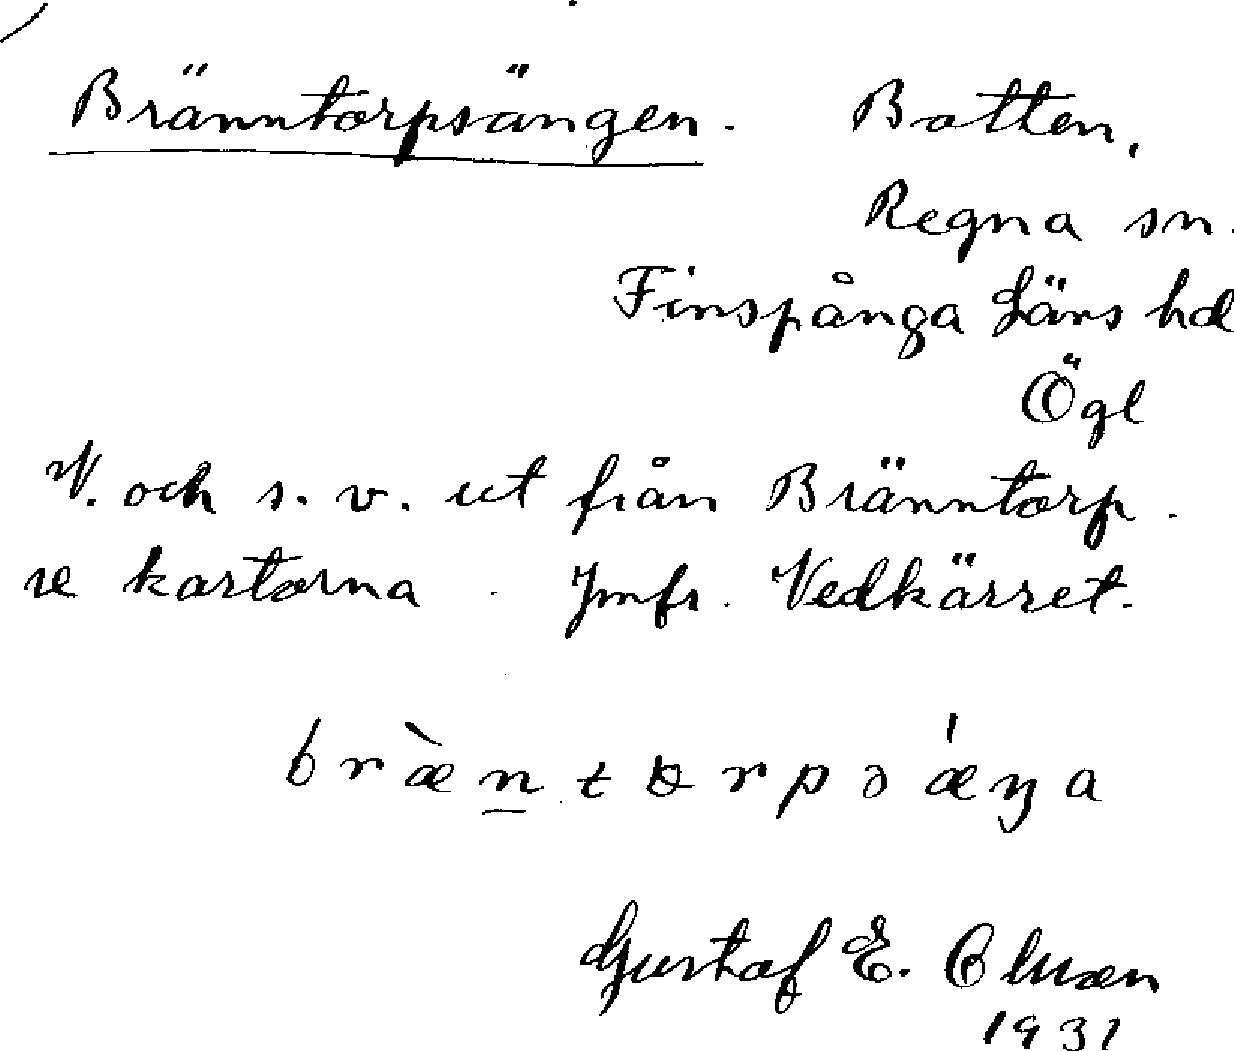 Bränntorpsängen. Botten,
Regna sn.
Finspånga Läns hd
Ögl
N. och s. v. ut från Bränntorp.
se kartorna. Jmfr. Vedkärret.
Gustaf E. Olsson
1931